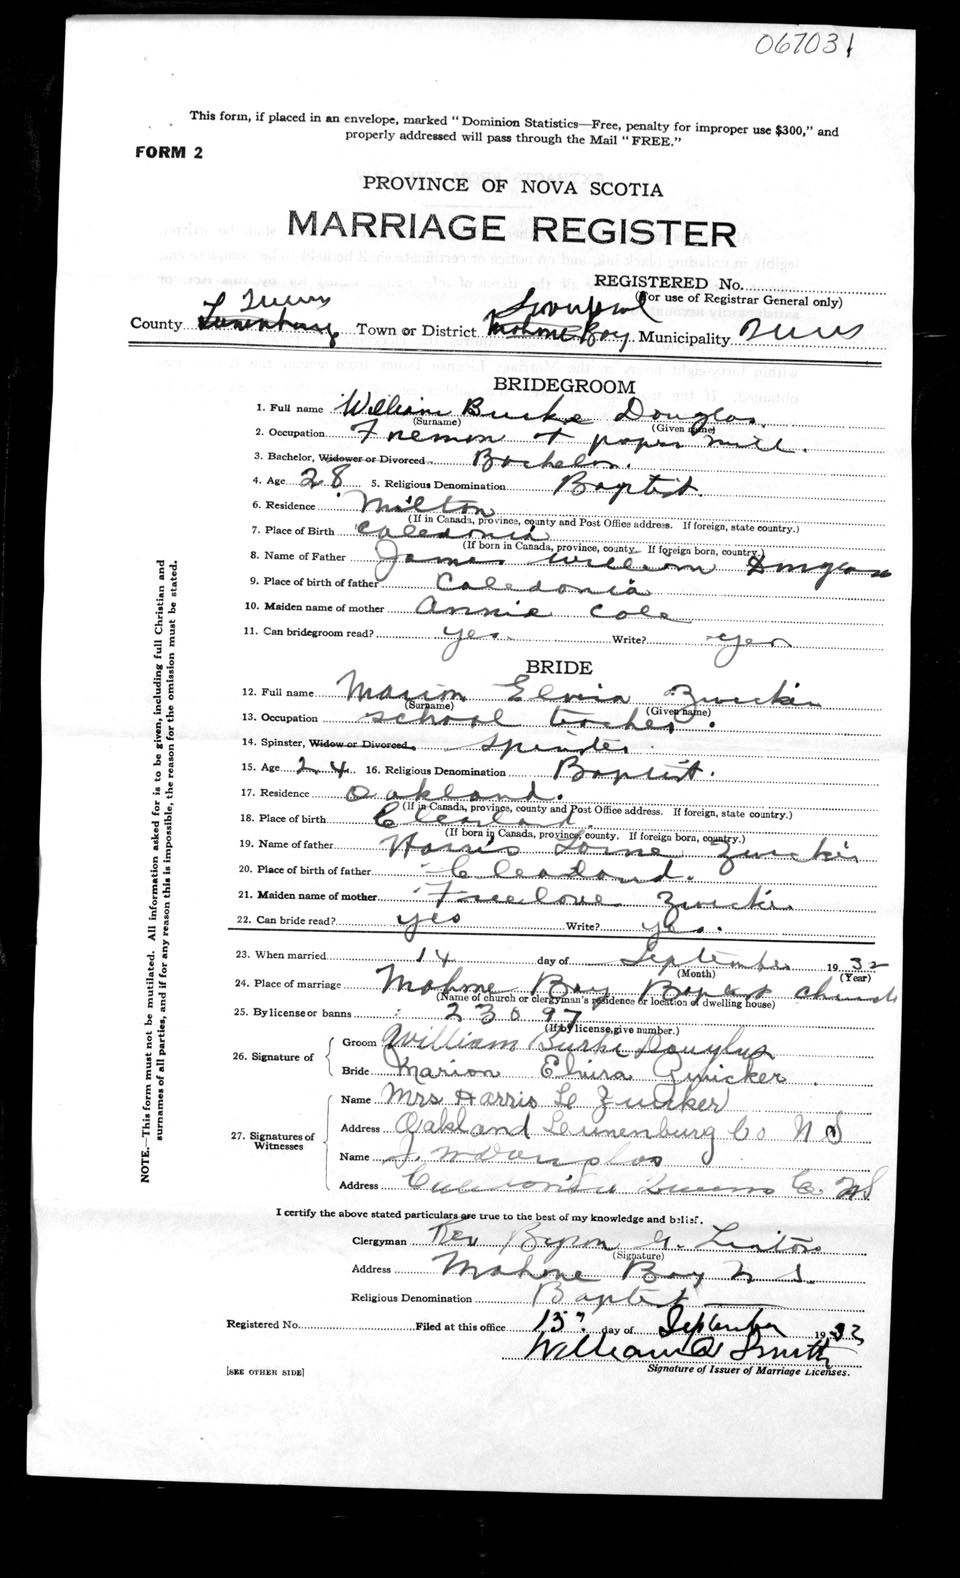 067031
This form, if placed in an envelope, marked "Dominion Statistics—Free, penalty for improper use $300," and
properly addressed will pass through the Mail "FREE."
FORM 2
PROVINCE OF NOVA SCOTIA
MARRIAGE REGISTER
REGISTERED No.
(For use of Registrar General only)
Queens Liverpool
County Lunenburg Town or District Mahone Bay Municipality Queens
BRIDEGROOM
1. Full name William Burke Douglas
(Surname) (Given name)
2. Occupation Fireman at paper mill.
3. Bachelor, Widower or Divorced Bachelor.
4. Age 28 5. Religious Denomination Baptist.
6. Residence Milton
(If in Canada, province, county and Post Office address. If foreign, state country.)
7. Place of Birth Caledonia
(If born in Canada, province, county. If foreign born, country.)
8. Name of Father James William Douglas
9. Place of birth of father Caledonia
10. Maiden name of mother Annie Cole
11. Can bridegroom read? yes Write? yes
BRIDE
12. Full name Marion Elvira Zwicker
(Surname) (Given name)
13. Occupation school teacher.
14. Spinster, Widow or Divorced. Spinster
15. Age 24 16. Religious Denomination Baptist.
17. Residence Oakland.
(If in Canada, province, county and Post Office address. If foreign, state country.)
18. Place of birth
(If born in Canada, province, county. If foreign born, country.)
19. Name of father Harris Lorne Zwicker
20. Place of birth of father
21. Maiden name of mother Freelove Zwicker
22. Can bride read? yes Write? yes.
23. When married 14 day of September 1932
(Month) (Year)
24. Place of marriage Mahone Bay Baptist church
(Name of church or clergyman's residence or location of dwelling house)
25. By license or banns 23097
(If by license, give number.)
26. Signature of Groom William Burke Douglas
Bride Marion Elvira Zwicker
27. Signatures of Witnesses
Name Mrs Harris L Zwicker
Address Oakland Lunenburg Co N S
Name J. W Douglas
Address Caledonia Queens Co N S
I certify the above stated particulars are true to the best of my knowledge and belief.
Clergyman Rev Byron G.
(Signature)
Address Mahone Bay N S.
Religious Denomination Baptist
Registered No. Filed at this office 15th day of September 1932
William A Smith
Signature of Issuer of Marriage Licenses.
[SEE OTHER SIDE]
NOTE.—This form must not be mutilated. All information asked for is to be given, including full Christian and
surnames of all parties, and if for any reason this is impossible, the reason for the omission must be stated.